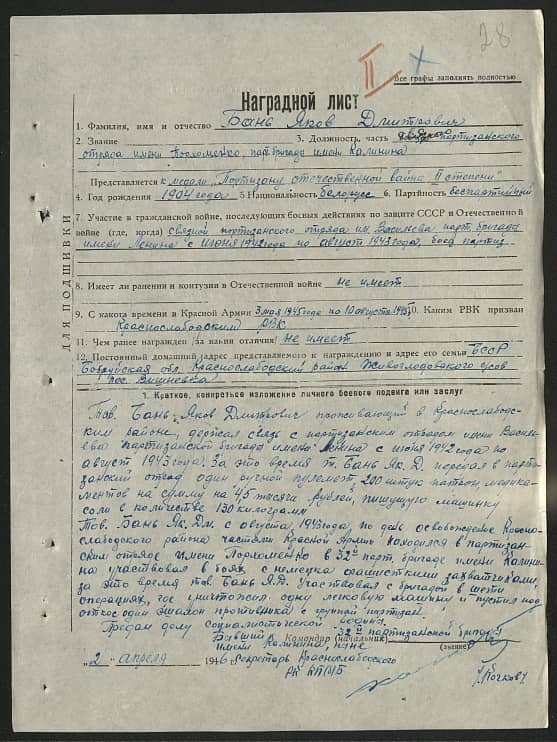 28
II
Все графы заполнять полностью
Наградной лист
1. Фамилия, имя и отчество Бань Яков Дмитрович
2. Звание 3. Должность, часть партизанского
отряда имени Пархоменко, парт. бригада имени Калинина
Представляется к медали „Партизану отечественной войны II степени“
4. Год рождения 1904 года 5. Национальность белорусс 6. Партийность беспартийный
7. Участие в гражданской войне, последующих боевых действиях по защите СССР и Отечественной
войне (где, когда) связной партизанского отряда им. Васильева парт. бригады
имени Ленина с июня 1942 года по август 1943 года, боец партиз.
8. Имеет ли ранения и контузии в Отечественной войне не имеет
9. С какого времени в Красной Армии 3 мая 1945 года по 10 августа 1945 10. Каким РВК призван
Краснослабодским РВК
11. Чем ранее награжден /за какия отличия/ не имеет
12. Постоянный домашний адрес представляемого к награждению и адрес его семьи БССР
Бобруйская обл. Краснослабодский район Живоглодовского с/сов
пос. Вишневека
ДЛЯ ПОДШИВКИ
1. Краткое, конкретное изложение личного боевого подвига или заслуг
Тов. Бань Яков Дмитрович проживающий в Краснослабод-
ским районе, держал связь с партизанским отрядом имени Василь-
ева партизанской бригада имени Ленина с июня 1942 года по
август 1943 года. За это время т. Бань Як. Д. передал в парти-
занский отряд один ручной пулемет, 200 штук патрон, медика-
ментов на сумму на 45 тысячи рублей, пишущую машинку
соли в количестве 130 килограмм
Тов. Бань Як. Дм. с августа 1943 года по день освобождение Красно-
слабодского района частями Красной Армии находился в партизан-
ским отряде имени Пархоменко в 32й парт. бригаде имени Калини-
на участвовал в боях с немецко фашисткими захватчиками,
за это время тов Бань Я.Д. участвовал с бригадой в шести
операциях, где уничтожил одну легковую машину и пустил под
откос один эшалон противника с группой партизан.
Предан делу социалистической родины.
Бывший Командир (начальник) 32й партизанской бригады
имени Калинина, ныне (звание)
„2“ апреля 1946 г. Секретарь Краснослабодского
РК КП/б/Б